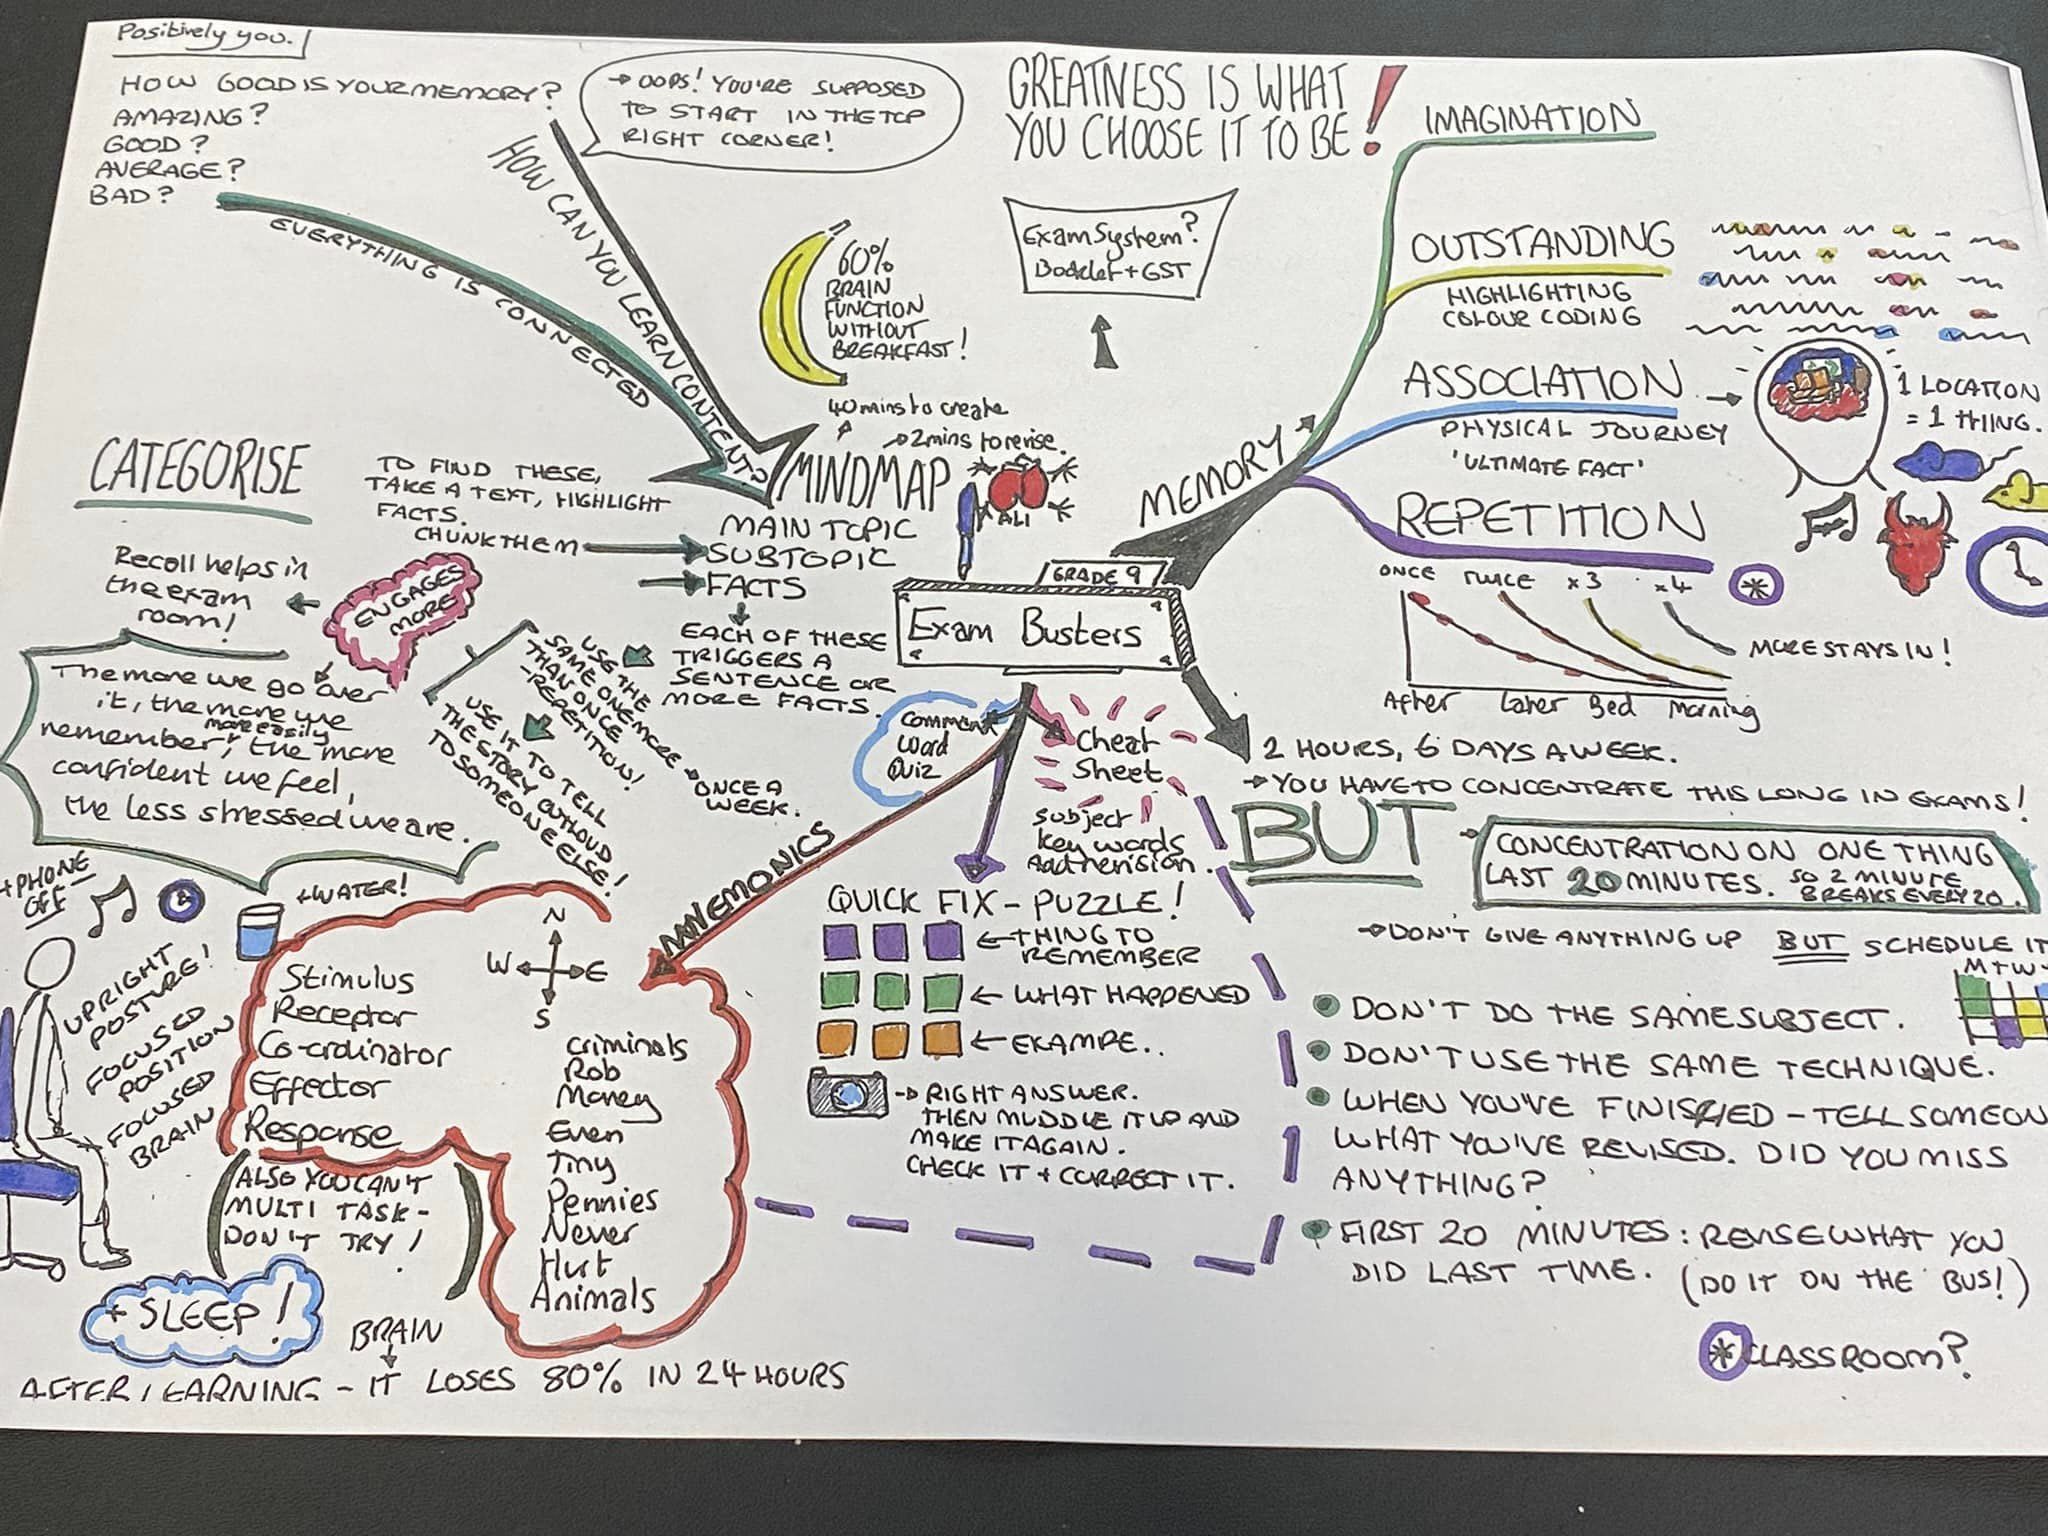 Positively you.
HOW GOOD IS YOUR MEMORY?
AMAZING?
GOOD?
AVERAGE?
BAD?
EVERYTHING IS CONNECTED
HOW CAN YOU LEARN CONTENT?
→ OOPS! YOU'RE SUPPOSED
TO START IN THE TOP
RIGHT CORNER!
GREATNESS IS WHAT
YOU CHOOSE IT TO BE!
Exam System?
Booklet + GST
60%
BRAIN
FUNCTION
WITHOUT
BREAKFAST!
40mins to create
→ 2mins to revise.
MINDMAP
ALI
MAIN TOPIC
SUBTOPIC
FACTS
EACH OF THESE
TRIGGERS A
SENTENCE OR
MORE FACTS.
CATEGORISE
TO FIND THESE,
TAKE A TEXT, HIGHLIGHT
FACTS.
CHUNK THEM
Recall helps in
the exam
room!
ENGAGES
MORE
The more we go over
it, the more we
remember, more easily
the more
confident we feel,
the less stressed we are.
USE THE
SAME ONE MORE
THAN ONCE
-REPETITION!
→ ONCE A
WEEK.
USE IT TO TELL
THE STORY OUTLOUD
TO SOMEONE ELSE!
GRADE 9
Exam Busters
MEMORY
IMAGINATION
OUTSTANDING
HIGHLIGHTING
COLOUR CODING
ASSOCIATION
PHYSICAL JOURNEY
'ULTIMATE FACT'
1 LOCATION
= 1 THING.
REPETITION
ONCE TWICE x3 x4
MORE STAYS IN!
After Later Bed Morning
2 HOURS, 6 DAYS A WEEK.
→ YOU HAVE TO CONCENTRATE THIS LONG IN EXAMS!
BUT
CONCENTRATION ON ONE THING
LAST 20 MINUTES. SO 2 MINUTE
BREAKS EVERY 20.
→ DON'T GIVE ANYTHING UP BUT SCHEDULE IT
M T W
• DON'T DO THE SAME SUBJECT.
• DON'T USE THE SAME TECHNIQUE.
• WHEN YOU'VE FINISHED - TELL SOMEON
WHAT YOU'VE REVISED. DID YOU MISS
ANYTHING?
• FIRST 20 MINUTES: REVISE WHAT YOU
DID LAST TIME. (DO IT ON THE BUS!)
* CLASSROOM?
Word
Quiz
Cheat
Sheet
Subject
Key words
QUICK FIX - PUZZLE!
← THING TO
REMEMBER
← WHAT HAPPENED
← EXAMPE..
→ RIGHT ANSWER.
THEN MUDDLE IT UP AND
MAKE IT AGAIN.
CHECK IT + CORRECT IT.
MNEMONICS
N
W E
S
Stimulus
Receptor
Co-ordinator
Effector
Response
Criminals
Rob
Money
Even
Tiny
Pennies
Never
Hurt
Animals
+ PHONE
OFF
+ WATER!
UPRIGHT
POSTURE!
FOCUSED
POSITION
FOCUSED
BRAIN
(ALSO YOU CAN'T
MULTI TASK -
DON'T TRY!)
+ SLEEP!
BRAIN
AFTER LEARNING - IT LOSES 80% IN 24 HOURS